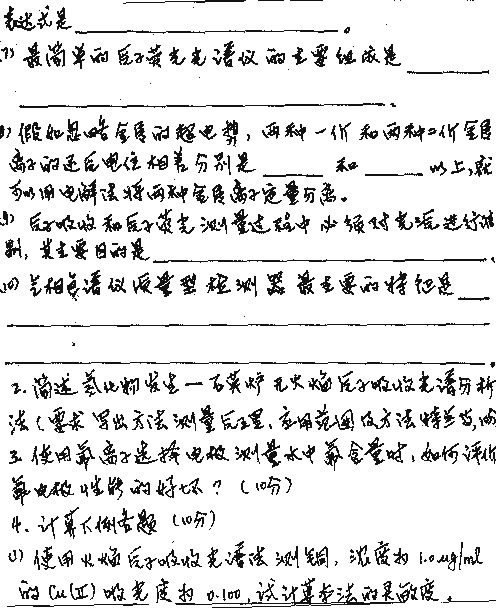 表达式是____________________。
(7) 最简单的原子荧光光谱仪的主要组成是________
____________________________________.
8) 假如忽略金属的超电势,两种一价和两种二价金属
离子的还原电位相差分别是______和______以上,就
可以用电解法将两种金属离子定量分离。
(9) 原子吸收和原子荧光测量过程中必须对光源进行
制,其主要目的是____________________________.
(10) 气相色谱仪质量型检测器最主要的特征是___
____________________________________
____________________________________.
2. 简述氢化物发生—石英炉无火焰原子吸收光谱分析
法(要求写出方法测量原理、应用范围及方法特点等,
3. 使用氟离子选择电极测量水中氟含量时,如何评价
氟电极性能的好坏?(10分)
4. 计算下例各题 (10分)
(1) 使用火焰原子吸收光谱法测铜,浓度为 1.0μg/ml
的 Cu(II) 吸光度为 0.100,试计算本法的灵敏度。